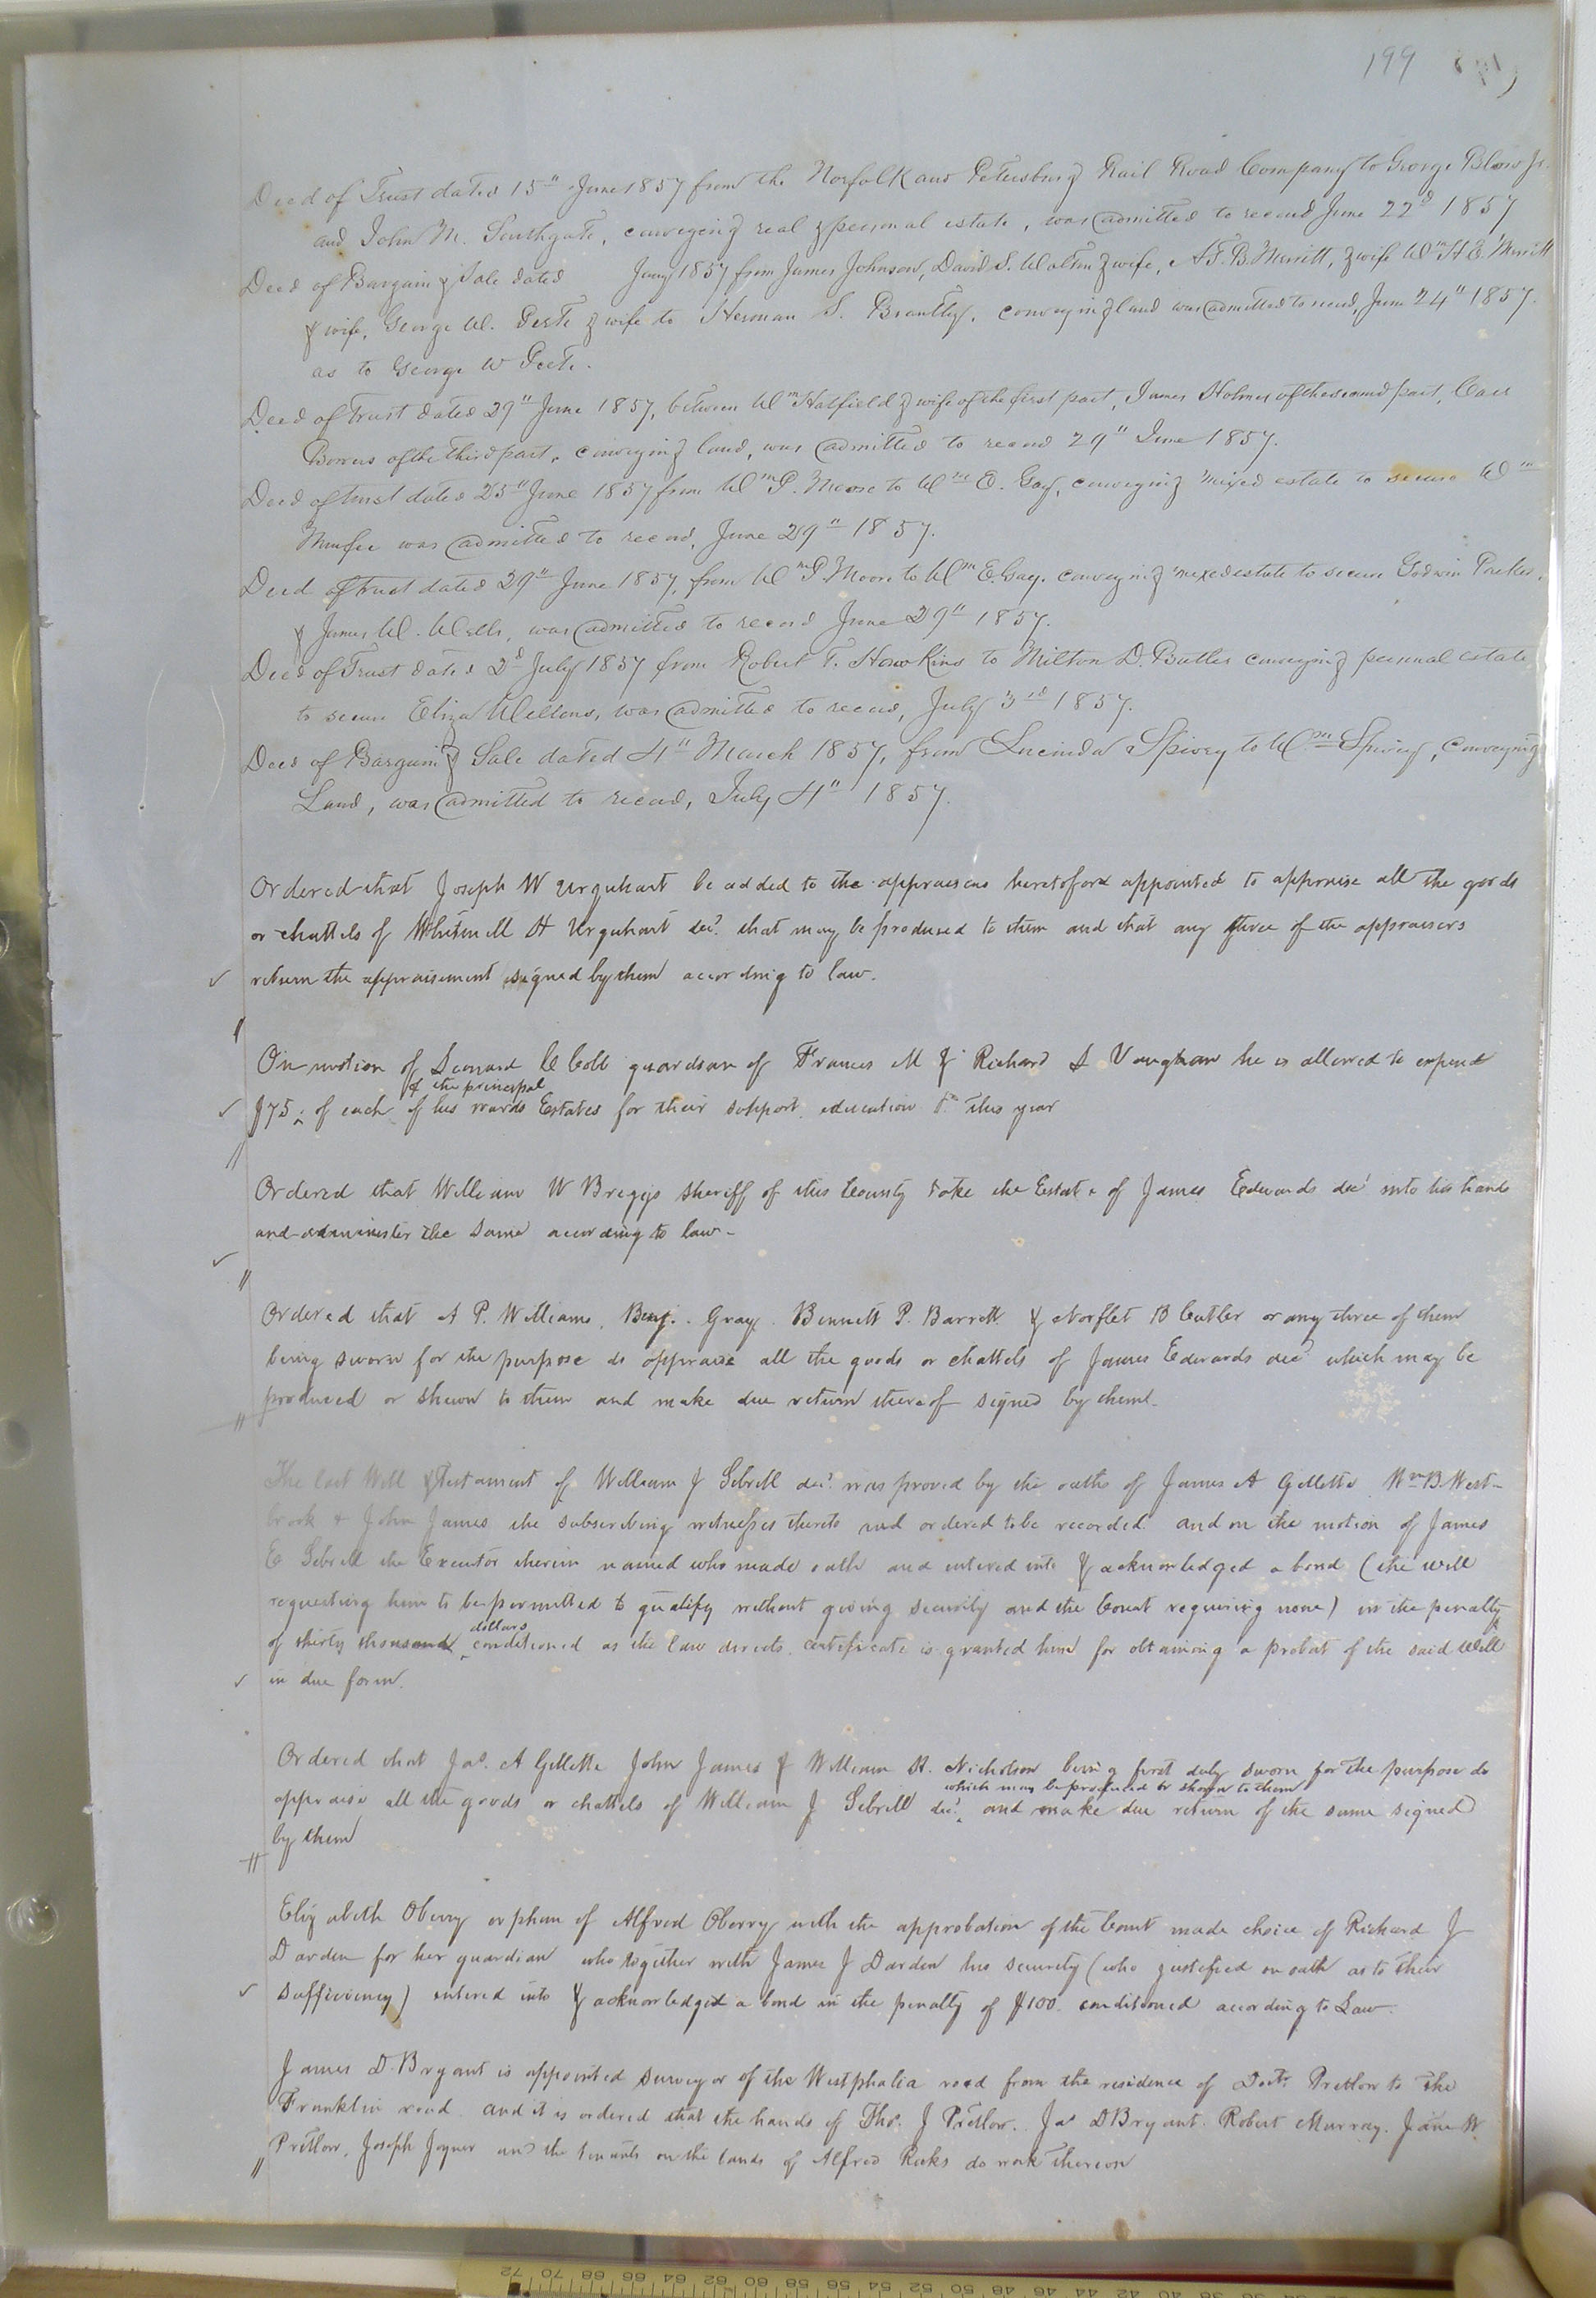 199
Deed of Trust dated 15" June 1857 from the Norfolk and Petersburg Rail Road Company to George Blow Jr.
and John M. Southgate, conveying real & personal estate, was admitted to record June 22d 1857
Deed of Bargain & Sale dated Jany 1857 from James Johnson, David S. Walton & wife, A. F. B. Merritt, & wife Wm H. E. Merritt
& wife, George W. Peete & wife to Herman S. Brantly, conveying land was admitted to record, June 24" 1857.
as to George W Peete.
Deed of Trust dated 29" June 1857, between Wm Hatfield & wife of the first part, James Holmes of the second part, Carr
Bowers of the third part, conveying land, was admitted to record 29" June 1857.
Deed of trust dated 25" June 1857 from Wm P. Moore to Wm E. Gay, conveying mixed estate to secure Wm
was admitted to record, June 29" 1857.
Deed of trust dated 29" June 1857, from Wm P. Moore to Wm E. Gay, conveying mixed estate to secure Godwin Parker,
& James W. Wells, was admitted to record June 29" 1857.
Deed of Trust dated 2d July 1857 from Robert T. Hawkins to Milton D. Butler conveying personal estate
to secure Eliza Wellons, was admitted to record, July 3rd 1857.
Deed of Bargain & Sale dated 4" March 1857, from Lucinda Spivey to Wm Spivey, conveying
Land, was admitted to record, July 4" 1857.
Ordered that Joseph W Urquhart be added to the appraisers heretofore appointed to appraise all the goods
or chattels of Whitmell H Urquhart decd. that may be produced to them and that any three of the appraisers
return the appraisement signed by them according to law.
On motion of Leonard C Cobb guardian of Frances M & Richard S Vaughan he is allowed to expend
of the principal
$75. of each of his wards Estates for their support education &c this year
Ordered that William W Briggs sheriff of this County take the Estate of James Edwards decd into his hands
and administer the same according to law.
Ordered that A P. Williams, Benj. Gray. Bennett P. Barrett & Norflet B Cutler or any three of them
being sworn for the purpose do appraise all the goods or chattels of James Edwards decd which may be
produced or shewn to them and make due return thereof signed by them.
The last Will & Testament of William J Sebrell decd. was proved by the oaths of James A Gillette Wm B. West-
brook & John James the subscribing witnesses thereto and ordered to be recorded and on the motion of James
E Sebrell the Executor therein named who made oath and entered into & acknowledged a bond (the will
requesting him to be permitted to qualify without giving security and the Court requiring none) in the penalty
dollars
of thirty thousand conditioned as the law directs certificate is granted him for obtaining a probat of the said Will
in due form.
Ordered that Jas. A Gillette John James & William H. Nicholson being first duly sworn for the purpose do
which may be produced or shown to them
appraise all the goods or chattels of William J Sebrell decd. and make due return of the same signed
by them
Elizabeth Oberry orphan of Alfred Oberry with the approbation of the Court made choice of Richard J
Darden for her guardian who together with James J Darden his security (who justified on oath as to their
sufficiency) entered into & acknowledged a bond in the penalty of $100 conditioned according to Law.
James D. Bryant is appointed surveyor of the Westphalia road from the residence of Doctr. Pretlow to the
Franklin road and it is ordered that the hands of Tho. J Pretlow. Jas D Bryant. Robert Murray. Jane W
Pretlow, Joseph Joyner and the tenants on the lands of Alfred Ricks do work thereon
72 70 68 66 64 62 60 58 56 54 52 50 48 46 44 42 40 38 36 34 32